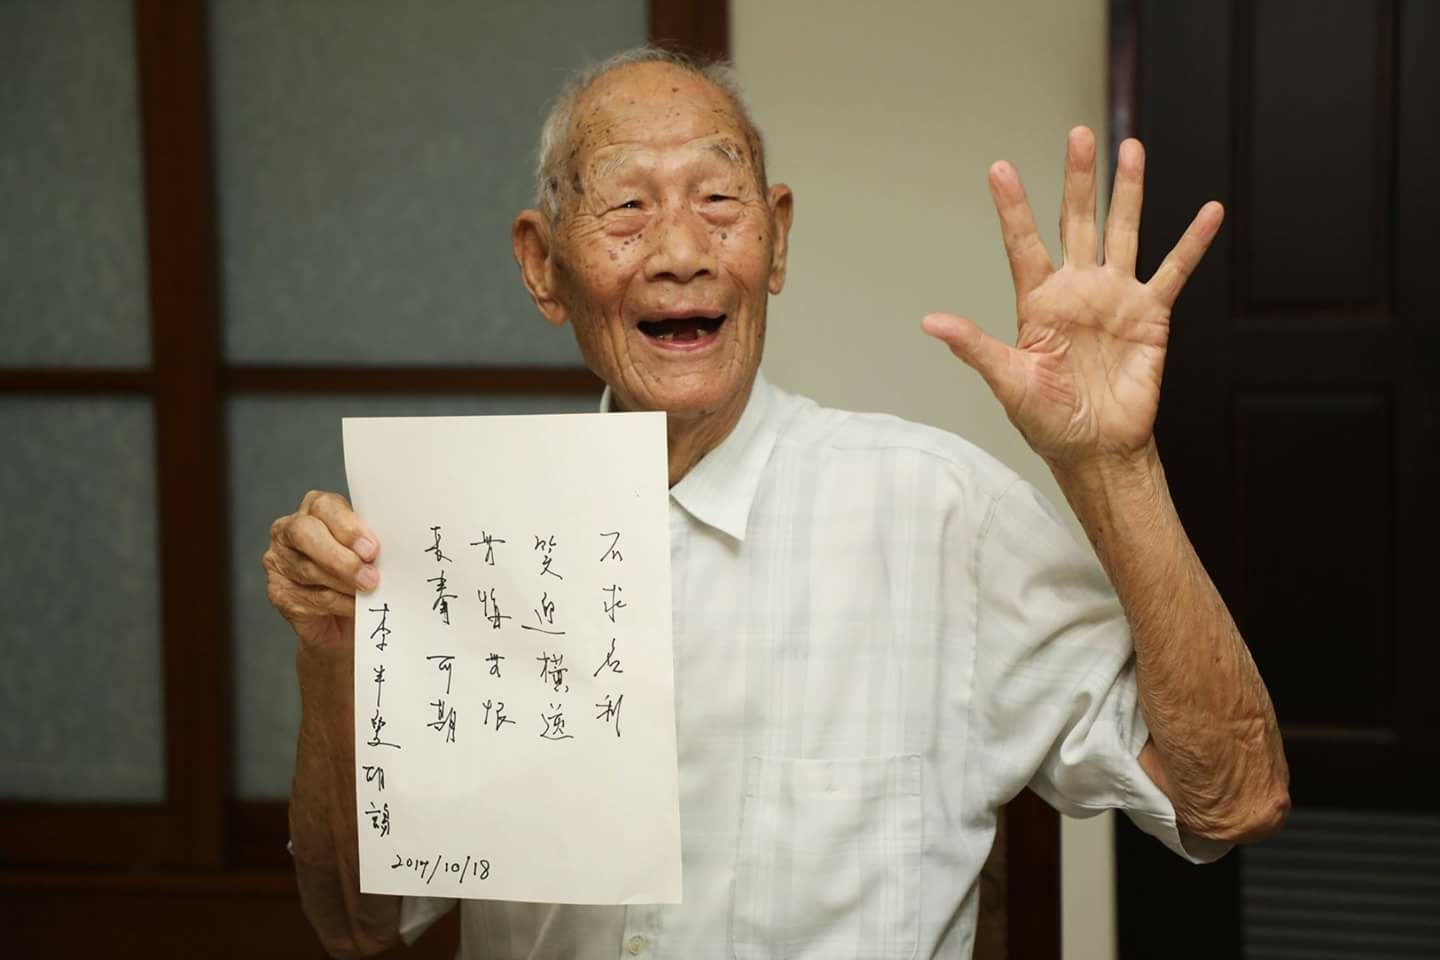 不求名利
笑迎橫逆
無悔無恨
長壽可期
李半叟胡謅
2017/10/18